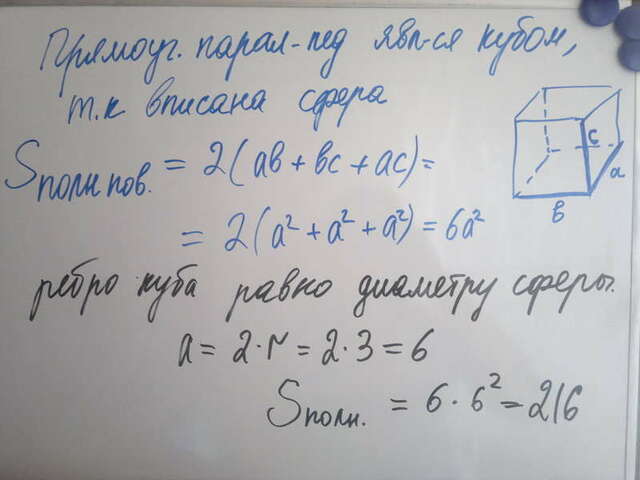 Прямоуг. парал-пед явл-ся кубом,
т.к вписана сфера
Sполн пов. = 2(ав + вс + ас) =
= 2(а² + а² + а²) = 6а²
с
а
в
ребро куба равно диаметру сферы.
а = 2·r = 2·3 = 6
Sполн. = 6·6² = 216